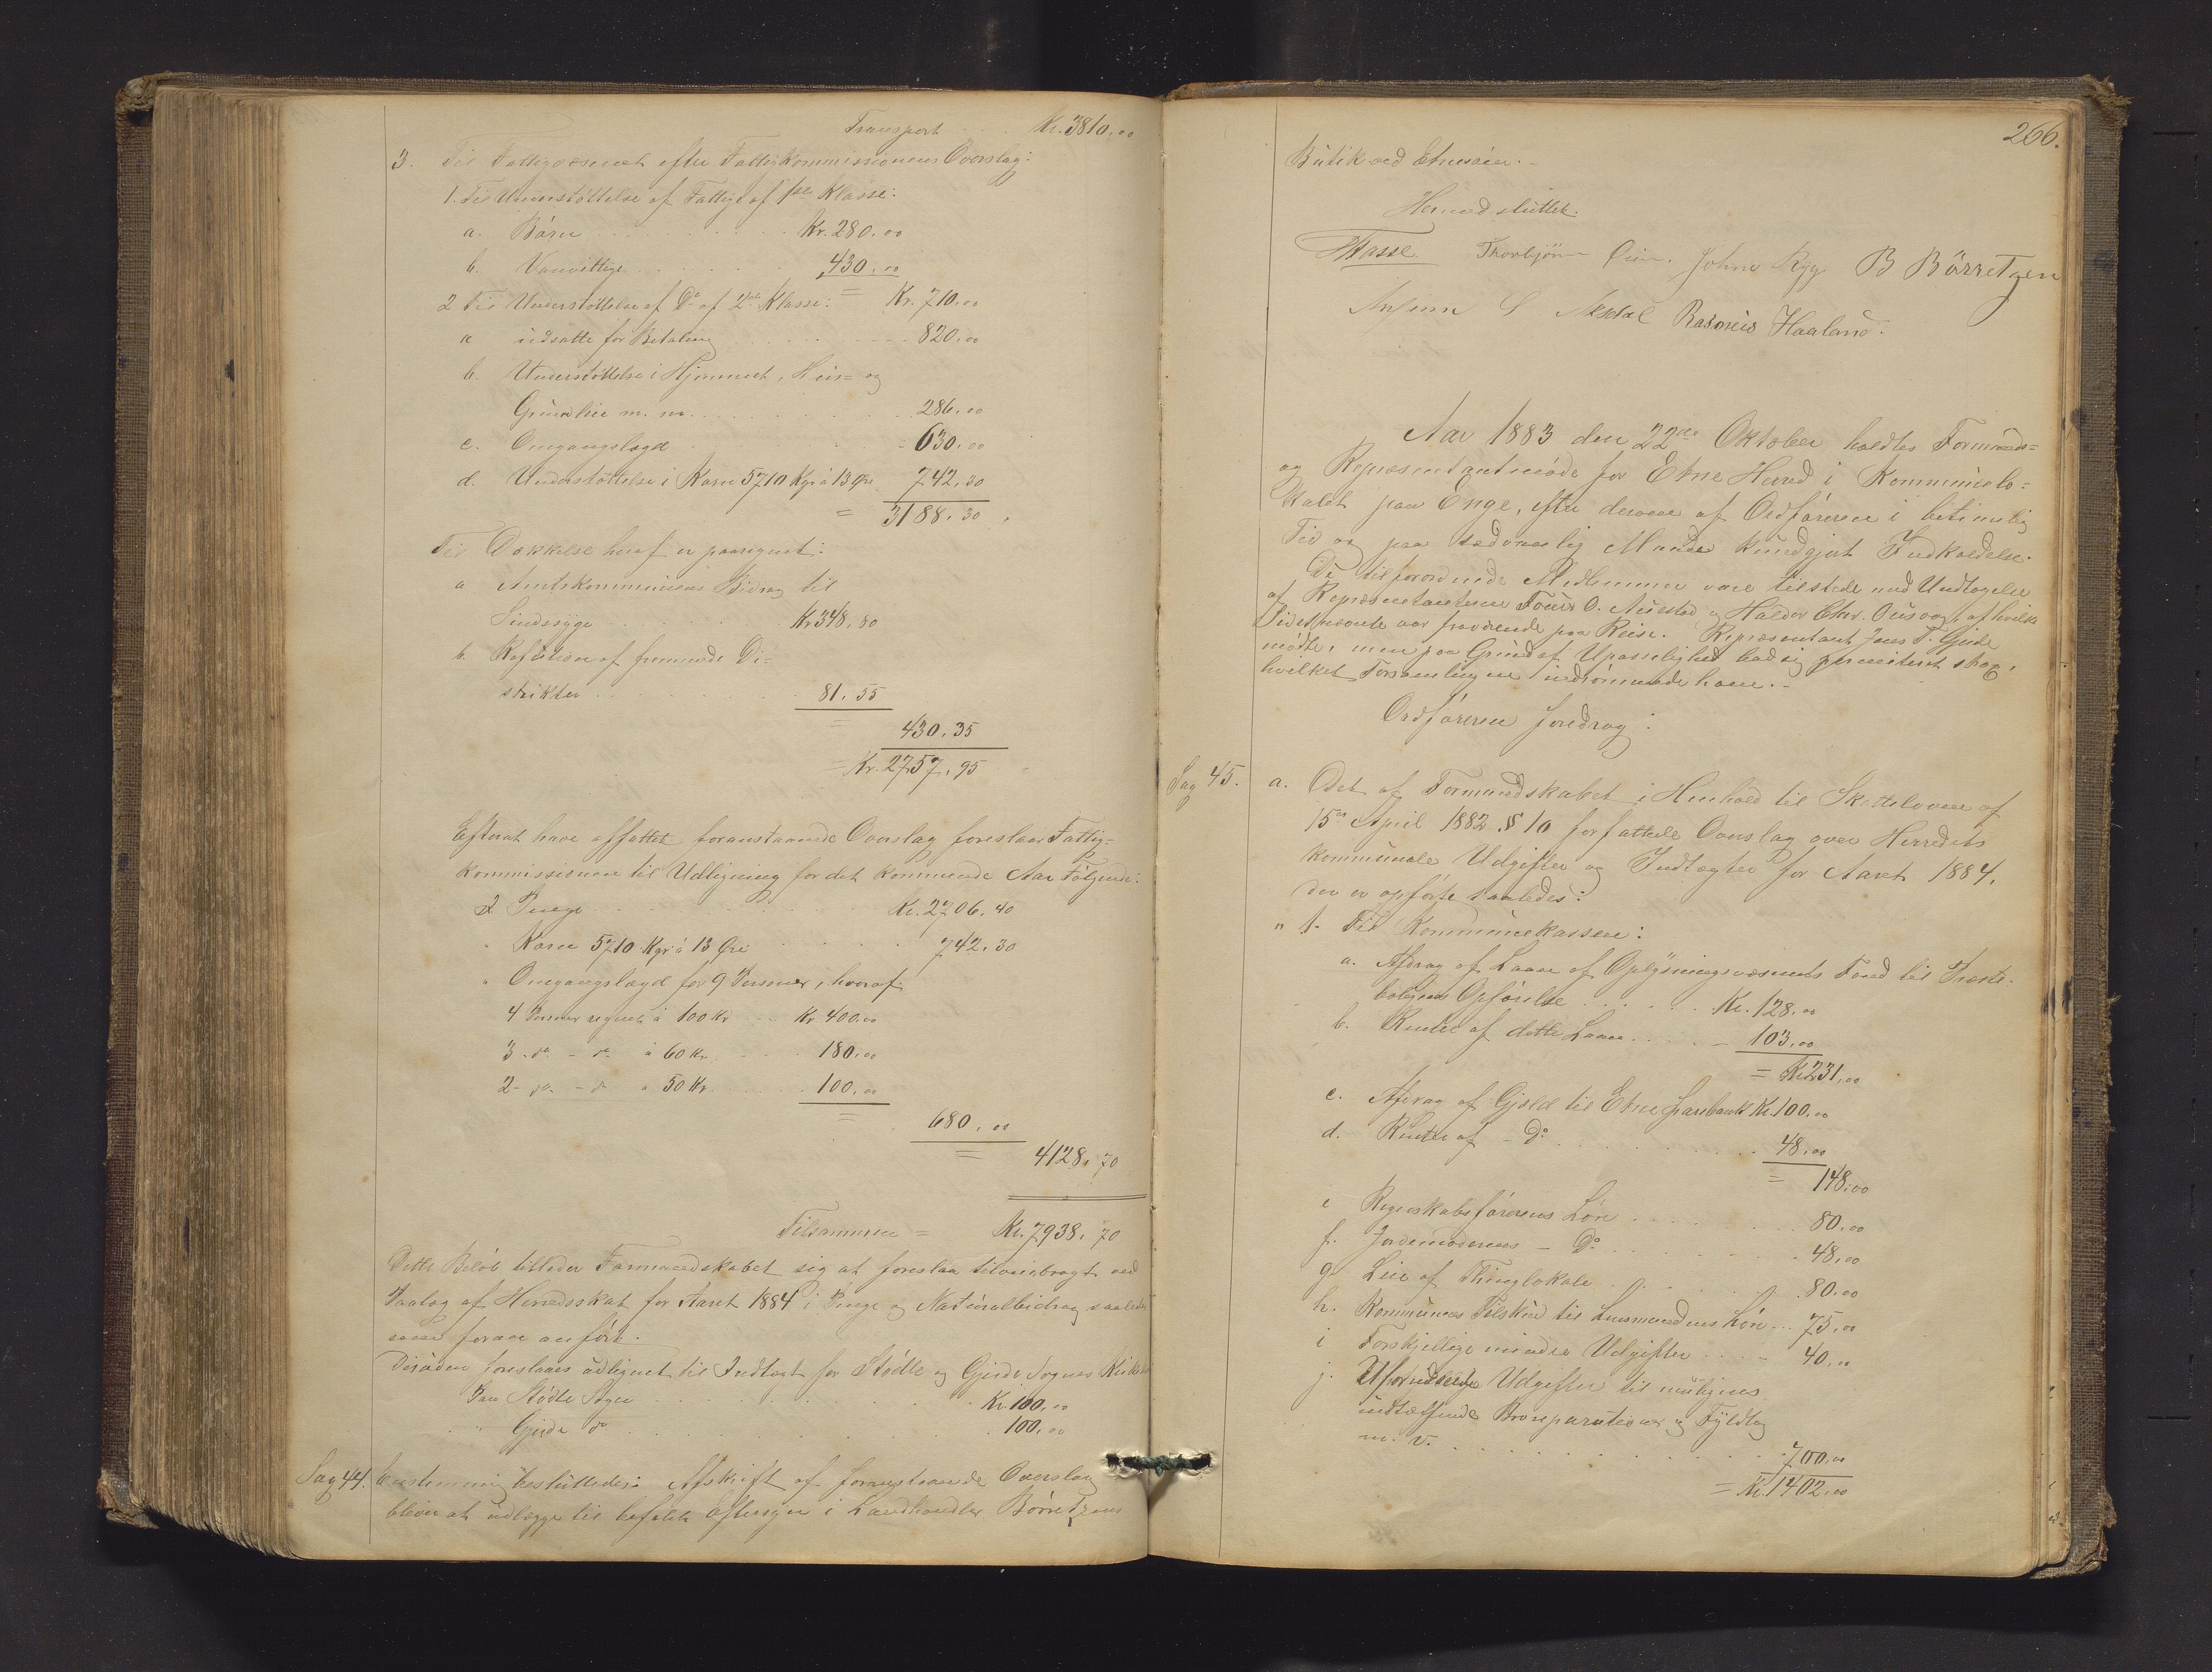 Transport . . . Kr. 3810,00
3. Til Fattigvæsenet efter Fattigkommissionens Overslag:
1. Til Understøttelse af Fattige af 1ste Klasse:
a. Børn . . . Kr. 280,00
b. Vanvittige . . . 430,00
= Kr. 710,00
2 Til Understøttelse af Do af 2den Klasse:
a udsatte for Betaling . . . 820,00
b. Understøttelse i Hjemmet, Huus= og
Grundleie m. m. . . . 286,00
c. Omgangslægd . . . 630,00
d. Understøttelse i Korn 5710 Kgr à 13 Øre 742,30
= 3188,30
Til Dækkelse heraf er paaregnet:
a Amtskommunens Bidrag til
Sindssyge . . . Kr 348,80
b. Refusion af fremmede Di=
strikter . . . 81,55
= 430,35
= Kr. 2757,95
Efterat have affattet foranstaaende Overslag foreslaar Fattig=
kommissionen til Udligning for det kommende Aar Følgende:
I Penge . . . Kr. 2706,40
" Korn 5710 Kgr à 13 Øre . . . 742,30
" Omgangslægd for 9 Personer, hvoraf:
4 Personer regnet à 100 Kr . . . Kr 400,00
3 - do - do à 60 Kr . . . 180,00
2 - do - do à 50 Kr . . . 100,00
= 680,00
= 4128,70
Tilsammen = Kr. 7938,70
Dette Beløb tillader Formandskabet sig at foreslaa tilveiebragt ved
Paalæg af Herredsskat for Aaret 1884 i Penge og Naturalbidrag saaledes
som foran anført.
Desuden foreslaaes udlignet til Indtægt for Stødle og Gjerde Sognes Kirker
Paa Stødle Sogn . . . Kr. 100,00
" Gjerde do . . . 100,00
Sag 44. Enstemmig besluttedes: Afskrift af foranstaaende Overslag
bliver at udlægge til befalet Eftersyn i Landhandler Børretzens
266.
Butik ved Etnesøen.-
Hermed sluttet.
Thorbjørn Øien. Johne Ryg B Börretzen
Aksdal Rasmus Haaland.
Aar 1883 den 22de Oktober holdtes Formands=
og Repræsentantmøde for Etne Herred i Kommunelo=
kalet paa Enge, efter derom af Ordføreren i betimelig
Tid og paa sædvanlig Maade kundgjort Indkaldelse.
De tilforordnede Medlemmer vare tilstede med Undtagelse
af Repræsentanterne Tønnes O. Austad og Halder Chr. Ousvog, af hvilke
Sidstnævnte var fraværende paa Reise. Repræsentant Jens T. Gjerde
mødte, men paa Grund af Upasselighed bad sig permitteret strax,
hvilket Forsamlingen indrømmede ham.-
Ordføreren foredrog:
Sag 45. a. Det af Formandskabet i Henhold til Skatteloven af
15de April 1882 § 10 forfattede Overslag over Herredets
kommunale Udgifter og Indtægter for Aaret 1884,
der er opførte saaledes:
" 1. Til Kommunekassen:
a. Afdrag af Laan af Oplysningsvæsenets Fond til Præste-
boligens Opførelse . . . Kr. 128,00
b. Renter af dette Laan . . . 103,00
= Kr 231,00
c. Afdrag af Gjæld til Etne Sparebank Kr. 100,00
d. Renter af - Do . . . 48,00
= 148,00
e Regnskabsførerens Løn . . . 80,00
f. Jordemoderens - Do . . . 48,00
g. Leie af Thinglokale . . . 80,00
h. Kommunens Tilskud til Lensmandens Løn . . . 75,00
i Forskjellige mindre Udgifter . . . 40,00
j. Uforudseede Udgifter til muligens
indtræffende Broreparationer og Fyldtog
m. v. . . . 700,00
= Kr. 1402,00